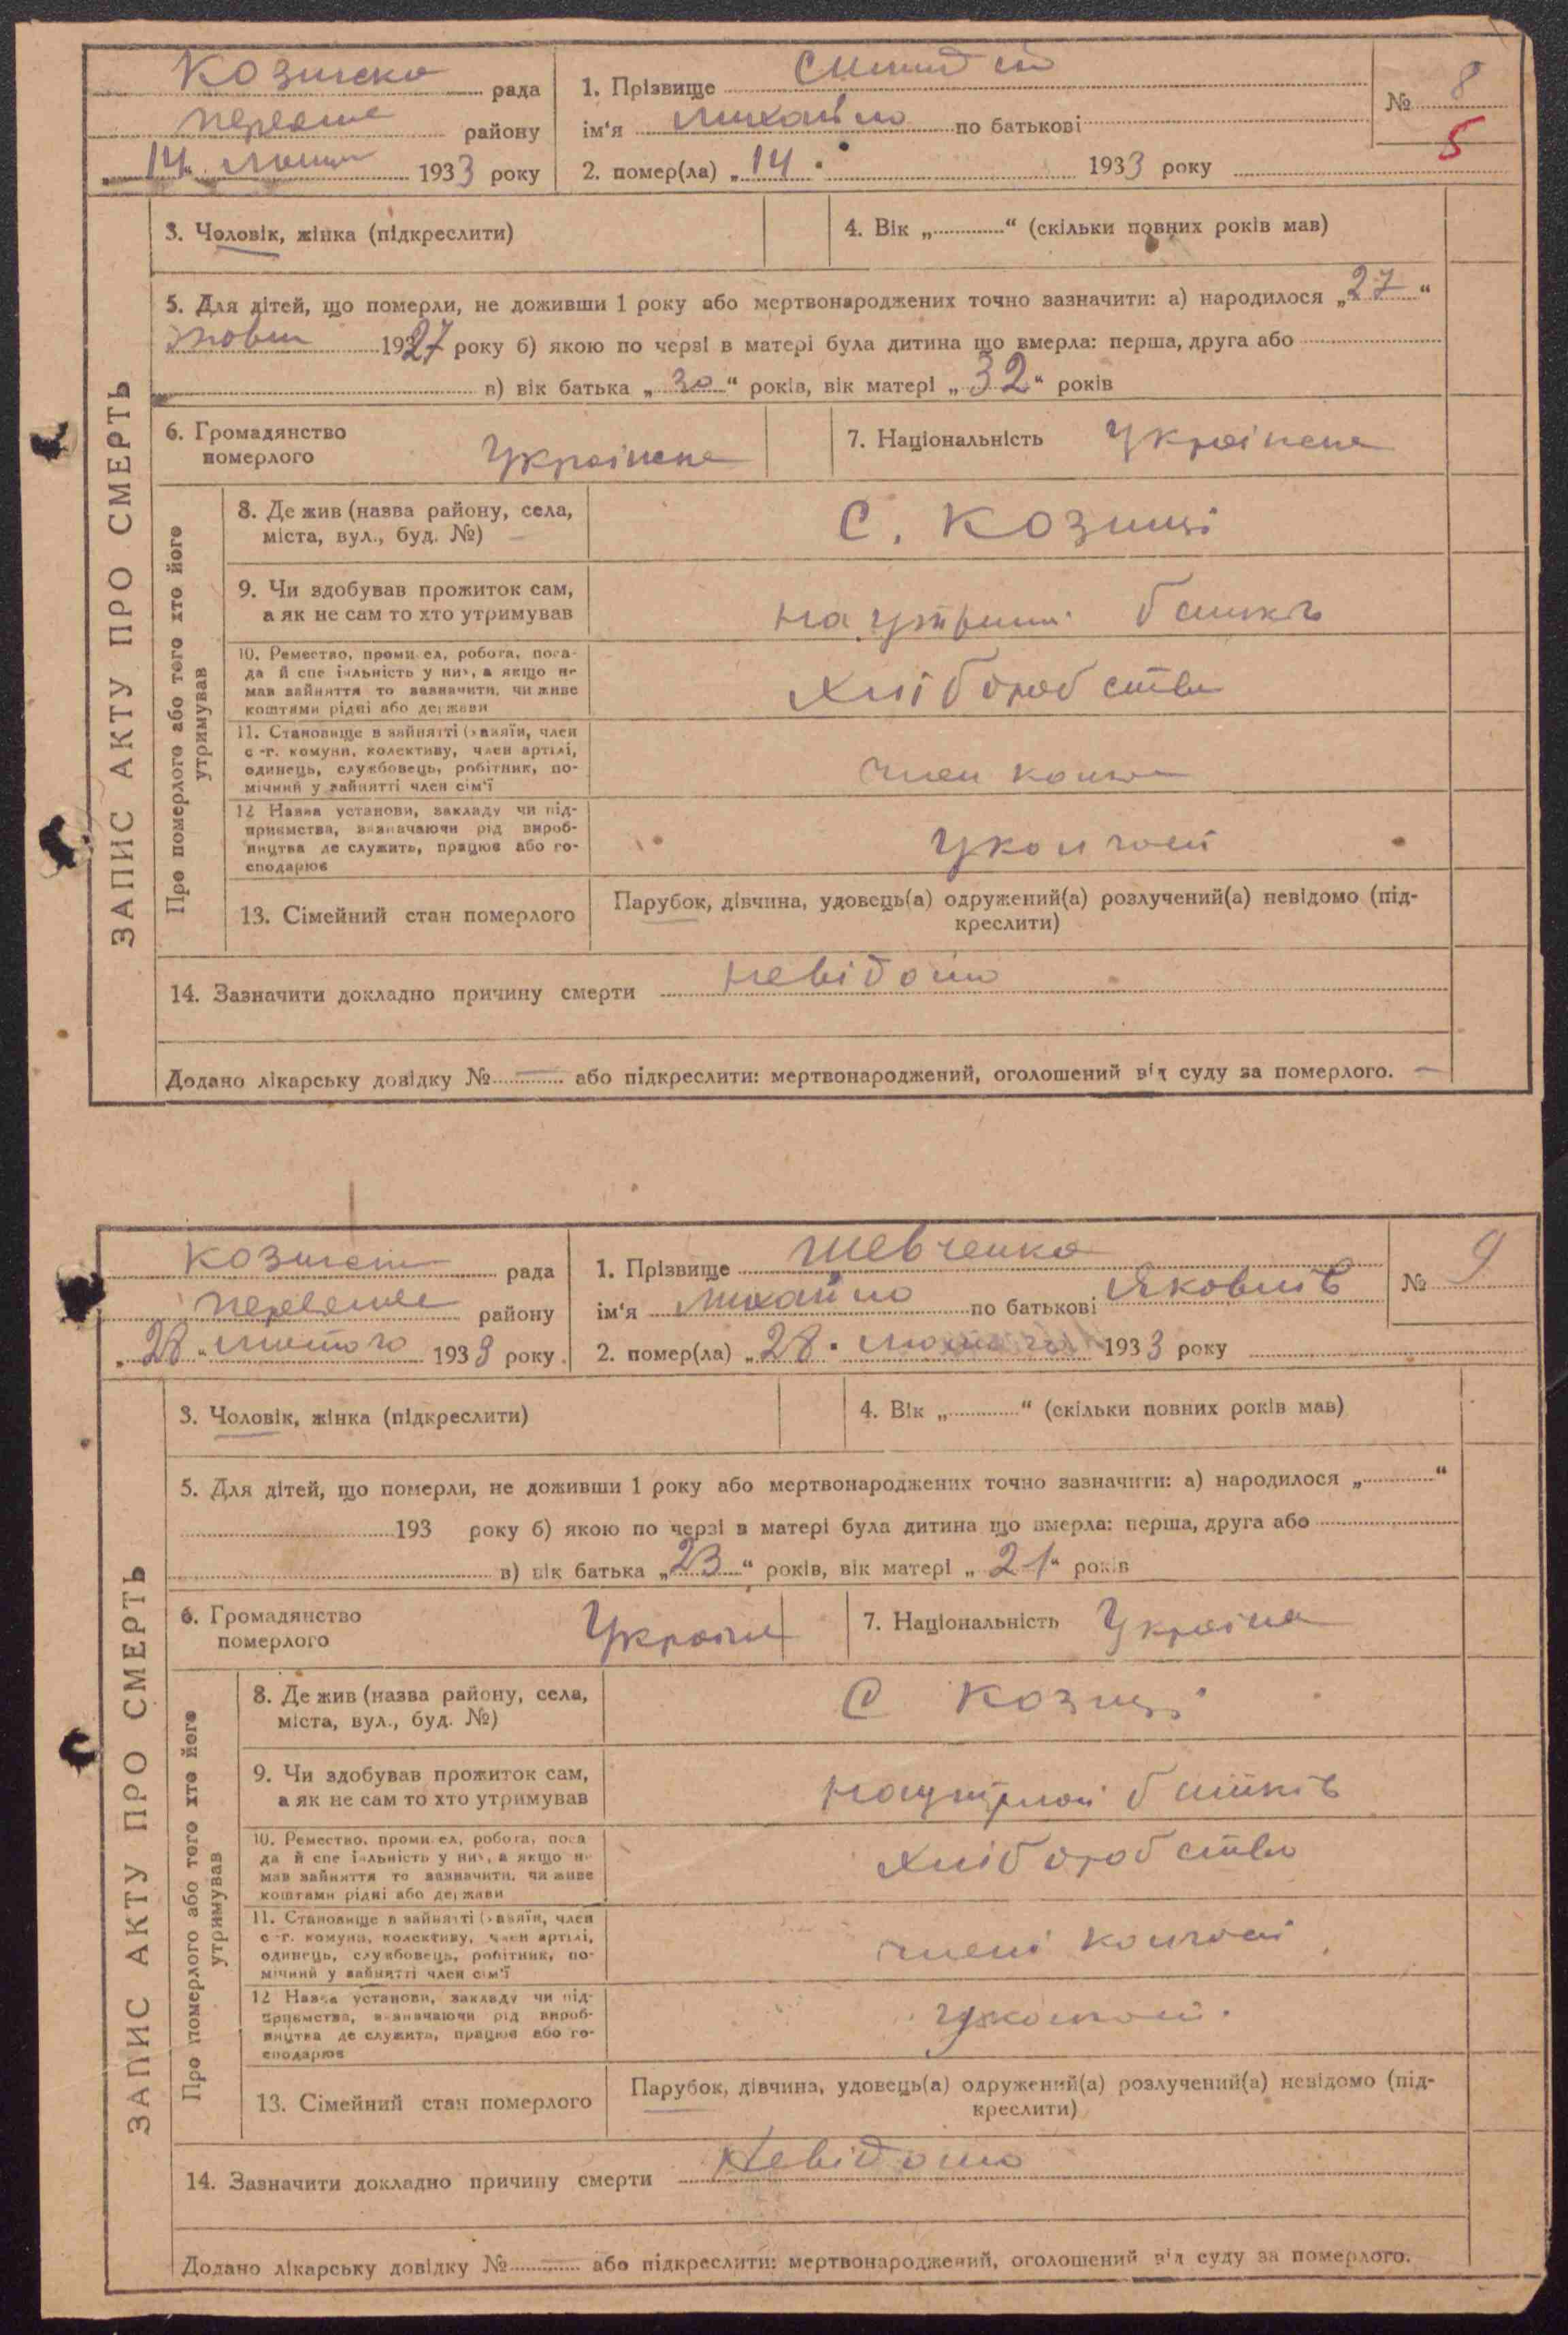 рада
району
"14" 1933 року
1. Прізвище
ім'я Михайло по батькові
2. помер(ла) "14" 1933 року
№ 8
5
3. Чоловік, жінка (підкреслити)
4. Вік „ “ (скільки повних років мав)
5. Для дітей, що померли, не доживши 1 року або мертвонароджених точно зазначити: а) народилося „27“
1927 року б) якою по черзі в матері була дитина що вмерла: перша, друга або
в) вік батька „30“ років, вік матері „32“ років
6. Громадянство
померлого
7. Національність
ЗАПИС АКТУ ПРО СМЕРТЬ
Про померлого або того хто його
утримував
8. Де жив (назва району, села,
міста, вул., буд. №)
С. Козинці
9. Чи здобував прожиток сам,
а як не сам то хто утримував
10. Ремество, промисел, робота, поса-
да й спеціяльність у них, а якщо не
мав зайняття то зазначити, чи живе
коштами рідні або держави
Хліборобство
11. Становище в зайнятті (хазяїн, член
с.-г. комуни, колективу, член артілі,
одинець, службовець, робітник, по-
мічний у зайнятті член сім'ї
член
12 Назва установи, закладу чи під-
приємства, визначаючи рід вироб-
ництва де служить, працює або го-
сподарює
13. Сімейний стан померлого
Парубок, дівчина, удовець(а) одружений(а) розлучений(а) невідомо (під-
креслити)
14. Зазначити докладно причину смерти невідомо
Додано лікарську довідку № — або підкреслити: мертвонароджений, оголошений від суду за померлого. —
рада
району
"28" лютого 1933 року
1. Прізвище Шевченко
ім'я Михайло по батькові Яковлів
2. помер(ла) "28" лютого 1933 року
№ 9
3. Чоловік, жінка (підкреслити)
4. Вік „ “ (скільки повних років мав)
5. Для дітей, що померли, не доживши 1 року або мертвонароджених точно зазначити: а) народилося „ “
193 року б) якою по черзі в матері була дитина що вмерла: перша, друга або
в) вік батька „23“ років, вік матері „21“ років
6. Громадянство
померлого
7. Національність
ЗАПИС АКТУ ПРО СМЕРТЬ
Про померлого або того хто його
утримував
8. Де жив (назва району, села,
міста, вул., буд. №)
С Козинці
9. Чи здобував прожиток сам,
а як не сам то хто утримував
батьків
10. Ремество, промисел, робота, поса
да й спеціяльність у них, а якщо не
мав зайняття то зазначити, чи живе
коштами рідні або держави
Хліборобство
11. Становище в зайнятті (хазяїн, член
с-г. комуни, колективу, член артілі,
одинець, службовець, робітник, по-
мічний у зайнятті член сім'ї
12 Назва установи, закладу чи під-
приємства, визначаючи рід вироб-
ництва де служить, працює або го-
сподарює
13. Сімейний стан померлого
Парубок, дівчина, удовець(а) одружений(а) розлучений(а) невідомо (під-
креслити)
14. Зазначити докладно причину смерти Невідомо
Додано лікарську довідку № — або підкреслити: мертвонароджений, оголошений від суду за померлого.